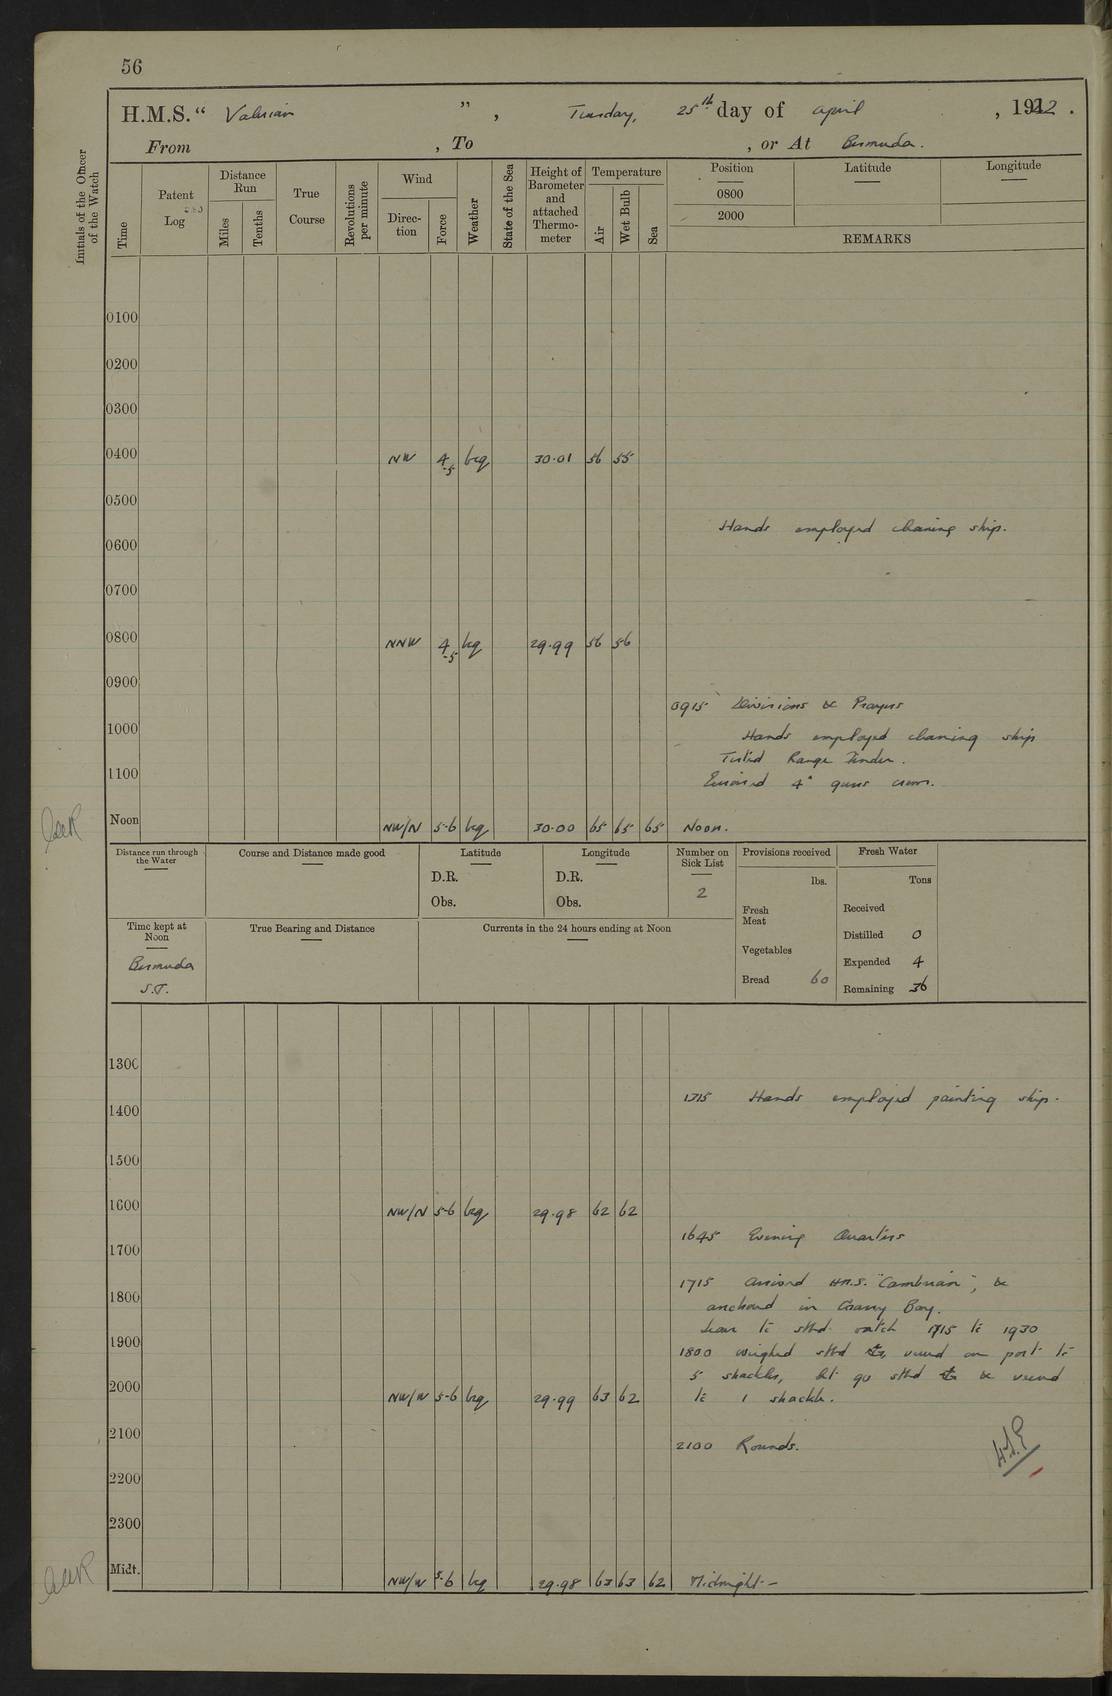 56
H.M.S. “ Valerian ” , Tuesday, 25th day of April , 1922 .
From , To , or At Bermuda.
Initials of the Officer of the Watch
Time
Patent Log
Distance Run
Miles
Tenths
True Course
Revolutions per minute
Wind
Direction
Force
Weather
State of the Sea
Height of Barometer and attached Thermometer
Temperature
Air
Wet Bulb
Sea
Position Latitude Longitude
0800
2000
REMARKS
0100
0200
0300
0400 NW 4-5 bcq 30.01 56 55
0500
Hands employed cleaning ship.
0600
0700
0800 NNW 4-5 bcq 29.99 56 56
0900
0915 Divisions & Prayers
1000 Hands employed cleaning ship
Tested Range Finder.
1100
4" guns crews.
Noon NW/N 5-6 bcq 30.00 65 65 65 Noon.
Distance run through the Water
Course and Distance made good
Latitude
D.R.
Obs.
Longitude
D.R.
Obs.
Number on Sick List
2
Provisions received
lbs.
Fresh Meat
Vegetables
Bread 60
Fresh Water
Tons
Received
Distilled 0
Expended 4
Remaining 36
Time kept at Noon
Bermuda
S.T.
True Bearing and Distance
Currents in the 24 hours ending at Noon
1300
1315 Hands employed painting ship.
1400
1500
1600 NW/N 5-6 bcq 29.98 62 62
1645 Evening Quarters
1700
1715 Arrived H.M.S. "Cambrian", &
1800 anchored in Grassy Bay.
Leave to stbd. watch 1715 to 1930
1900 1800 weighed stbd , veered on port to
5 shackles, let go stbd & veered
2000 NW/W 5-6 bcq 29.99 63 62 to 1 shackle.
2100 2100 Rounds.
2200
2300
Midt. NW/W 5-6 bcq 29.98 63 63 62 Midnight—